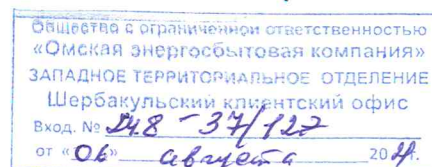 Общество с ограниченной ответственностью
«Омская энергосбытовая компания»
ЗАПАДНОЕ ТЕРРИТОРИАЛЬНОЕ ОТДЕЛЕНИЕ
Шербакульский клиентский офис
Вход. № 248-37/127
от «06» августа 20 г.